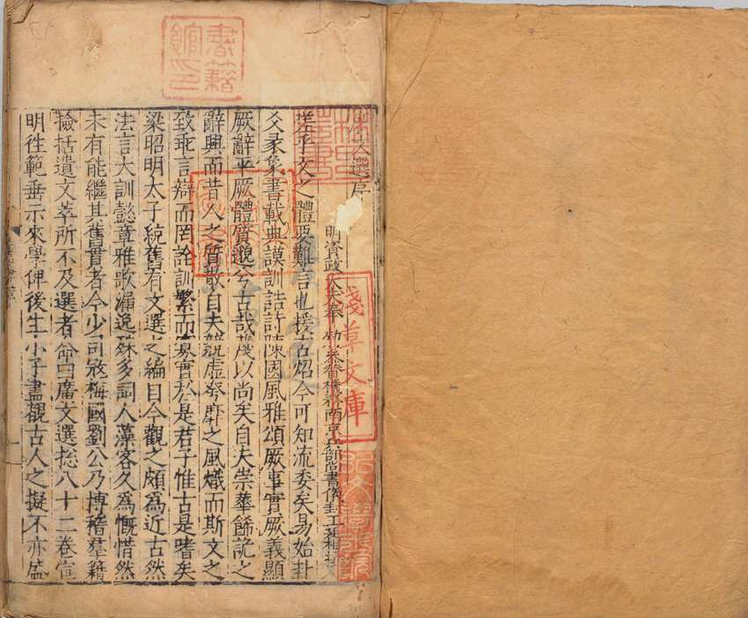 文選序
明資政大夫奉
嗟乎文之體要難言也援古炤今可知流委矣易始卦
爻彖象書載典謨訓誥詩陳國風雅頌厥事實厥義顯
厥辭平厥體質邈兮古哉蔑以尚矣自夫崇華飾詭之
辭興而昔人之質散自夫競虛夸靡之風熾而斯文之
致乖言辯而罔詮訓繁而寡實於是君子惟古是嗜矣
梁昭明太子統舊有文選之編自今觀之頗為近古然
法言大訓懿章雅歌漏逸殊多詞人藻客久為慨惜然
未有能繼其舊貫者今少司寇梅國劉公乃博稽羣籍
撿括遺文萃所不及選者命曰廣文選捴八十二卷宣
明徃範垂示來學俾後生小子盡覩古人之擬不亦盛
書籍館印
淺草文庫